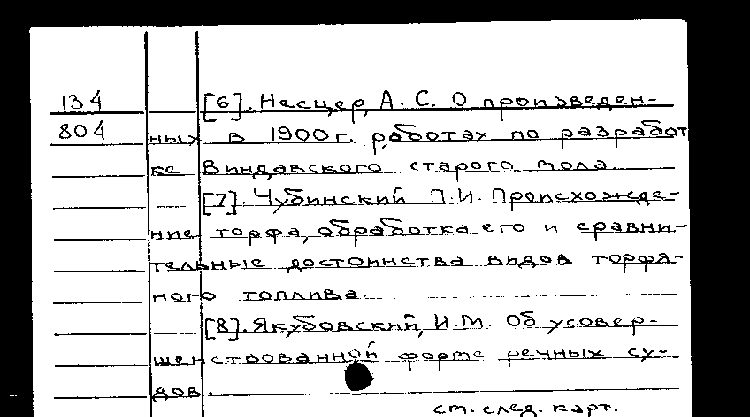 134 [6]. Несцер, А. С. О произведен-
804 ных в 1900 г. работах по разработ
ке Виндавского старого мола.
[7]. Чубинский П.И. Происхожде-
ние торфа, обработка его и сравни-
тельные достоинства видов торфя-
ного топлива.
[8]. Якубовский, И.М. Об усовер-
шенствованной форме речных су-
дов.
см. след. карт.